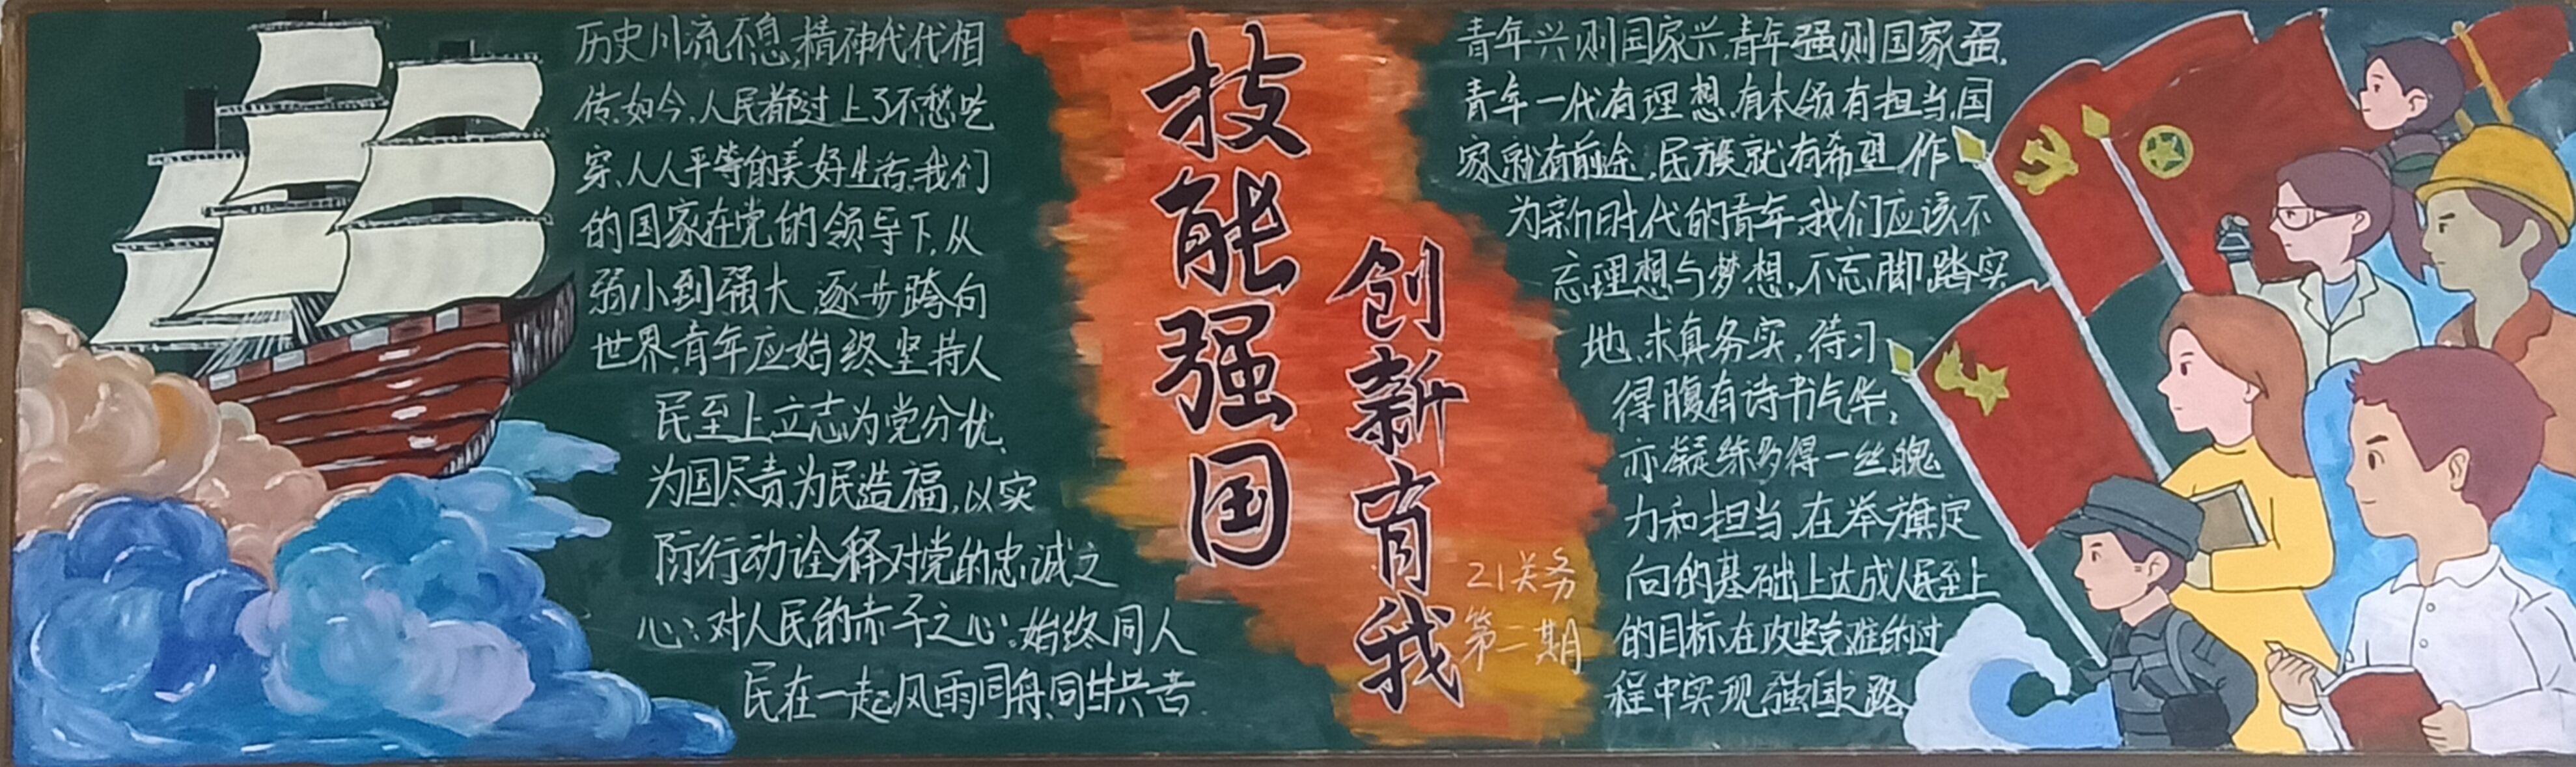 历史川流不息,精神代代相
传.如今,人民都过上了不愁吃
穿、人人平等的美好生活.我们
的国家在党的领导下,从
弱小到强大,逐步跨向
世界.青年应始终坚持人
民至上,立志为党分忧、
为国尽责、为民造福,以实
际行动诠释对党的忠诚之
心;对人民的赤子之心。始终同人
民在一起,风雨同舟、同甘共苦.
技能强国
创新有我
21关务
第二期
青年兴则国家兴,青年强则国家强.
青年一代有理想、有本领、有担当,国
家就有前途,民族就有希望.作
为新时代的青年,我们应该不
忘理想与梦想,不忘脚踏实
地、求真务实,待习
得腹有诗书气华,
亦凝练多得一丝魄
力和担当,在举旗定
向的基础上达成人民至上
的目标,在攻坚克难的过
程中实现强国之路